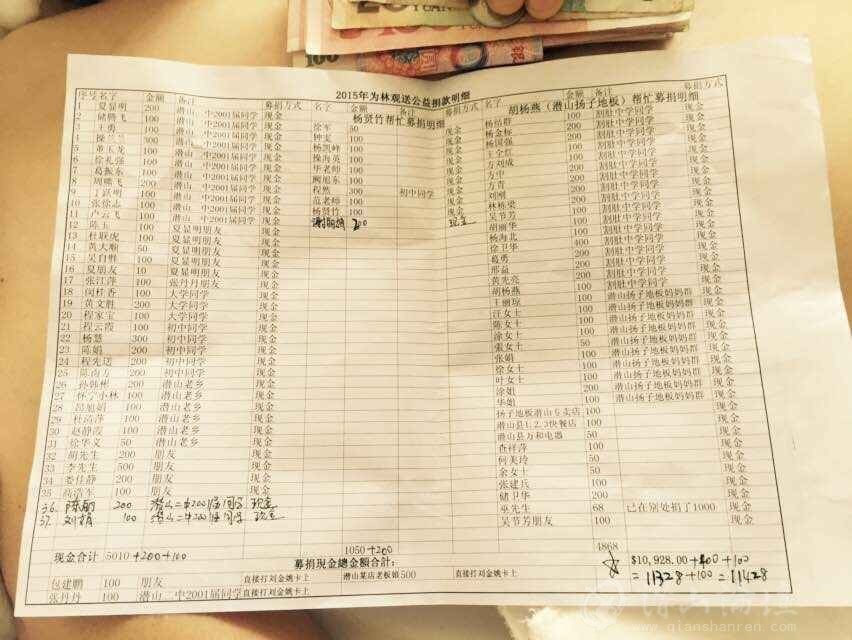 2015年为林观送公益捐款明细
序号 名字 金额 备注 募捐方式 名字 金额 备注 募捐方式 名字 金额 备注 募捐方式
杨贤竹帮忙募捐明细
胡杨燕（潜山扬子地板）帮忙募捐明细
1 夏显明 200 潜山二中2001届同学 现金
2 储腾飞 100 潜山二中2001届同学 现金
3 王勇 100 潜山二中2001届同学 现金
4 300 潜山二中2001届同学 现金
5 100 潜山二中2001届同学 现金
6 徐礼强 100 潜山二中2001届同学 现金
7 葛振东 100 潜山二中2001届同学 现金
8 周曙飞 200 潜山二中2001届同学 现金
9 丁跃明 100 潜山二中2001届同学 现金
10 张徐志 100 潜山二中2001届同学 现金
11 卢云飞 100 潜山二中2001届同学 现金
12 陈玉 100 夏显明朋友 现金
13 杜联虎 100 夏显明朋友 现金
14 黄大顺 50 夏显明朋友 现金
15 吴自辉 100 夏显明朋友 现金
16 夏朋友 10 夏显明朋友 现金
17 张江萍 100 张丹丹朋友 现金
18 闵桂香 100 大学同学 现金
19 黄文胜 200 大学同学 现金
20 程家宝 100 大学同学 现金
21 程云霞 100 初中同学 现金
22 杨慧 300 初中同学 现金
23 陈娟 200 初中同学 现金
24 程先送 100 初中同学 现金
25 陈南方 200 初中同学 现金
26 孙韩州 200 潜山老乡 现金
27 怀宁小林 100 潜山老乡 现金
28 昂旭娟 100 潜山老乡 现金
29 杜高萍 100 潜山老乡 现金
30 赵静霞 100 潜山老乡 现金
31 徐华文 50 潜山老乡 现金
32 胡先生 200 朋友 现金
33 李先生 500 朋友 现金
34 娄佳静 200 朋友 现金
35 高浩军 100 朋友 现金
36. 陈丽 200 潜山二中2001届同学 现金
37. 刘娟 100 潜山二中2001届同学 现金
现金合计 5010 +200+100
徐军 50 现金
钟支 100 现金
杨凯峰 100 现金
操海英 100 现金
华老师 100 现金
阚旭东 100 现金
程然 300 初中同学 现金
范老师 100 现金
杨贤竹 100 现金
200 现金
1050 +200
杨结群 100 割肚中学同学 现金
杨金标 200 割肚中学同学 现金
杨国强 200 割肚中学同学 现金
王全红 100 割肚中学同学 现金
方刘成 100 割肚中学同学 现金
方中 200 割肚中学同学 现金
方青 200 割肚中学同学 现金
刘刚 200 割肚中学同学 现金
林栋梁 100 割肚中学同学 现金
吴节芳 100 割肚中学同学 现金
胡丽华 100 割肚中学同学 现金
杨海北 400 割肚中学同学 现金
徐卫华 200 割肚中学同学 现金
葛勇 200 割肚中学同学 现金
邢益 100 割肚中学同学 现金
黄先亮 200 割肚中学同学 现金
胡杨燕 100 潜山扬子地板妈妈群 现金
王丽琼 100 潜山扬子地板妈妈群 现金
汪女士 100 潜山扬子地板妈妈群 现金
陈女士 100 潜山扬子地板妈妈群 现金
涂女士 100 潜山扬子地板妈妈群 现金
索女士 50 潜山扬子地板妈妈群 现金
张娟 100 潜山扬子地板妈妈群 现金
徐女士 100 潜山扬子地板妈妈群 现金
叶女士 100 潜山扬子地板妈妈群 现金
涂姐 200 潜山扬子地板妈妈群 现金
华姐 100 潜山扬子地板妈妈群 现金
扬子地板潜山专卖店 100 现金
潜山县1.2.3快餐店 100 现金
潜山县万和电器 50 现金
查祥萍 100 现金
柯美玲 50 现金
余女士 50 现金
张建兵 100 现金
储卫华 200 现金
巫先生 68 已在别处捐了1000 现金
吴节芳朋友 100 现金
4868
募捐现金總金額合計：
$10,928.00 +400 +100
=11328+100 =11428
包建鹏 100 朋友 直接打刘金娥卡上 潜山某店老板馈 500 直接打刘金娥卡上
张丹丹 100 潜山二中2001届同学 直接打刘金娥卡上
www.qianshanren.com